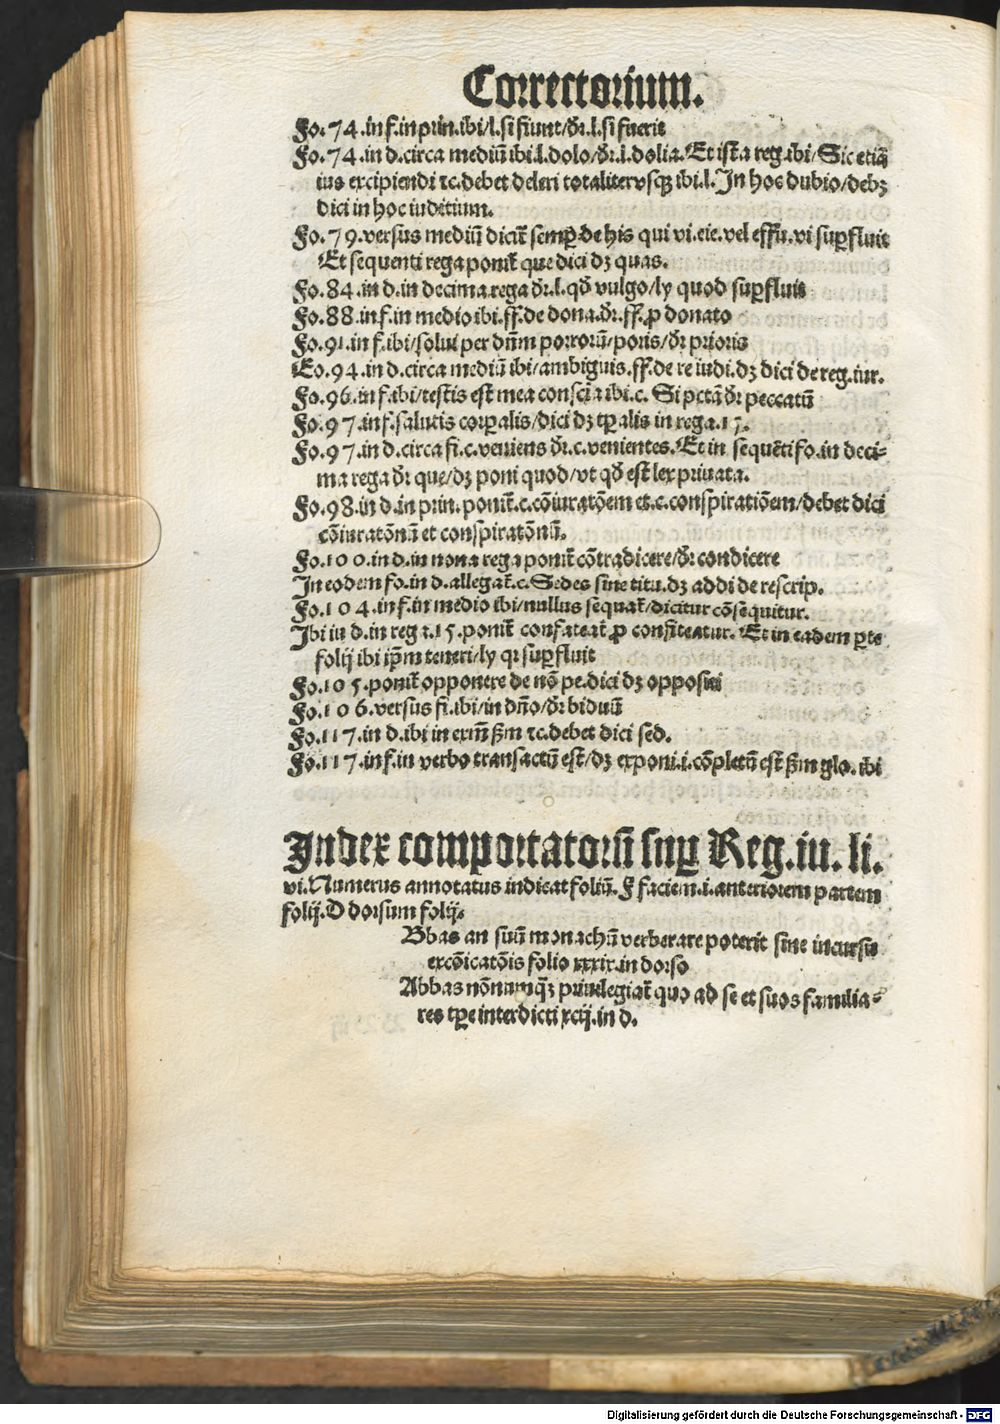 Correctorium.
Fo.74.in f.in prin.ibi/l.si fiunt/dr̄.l.si fuerit
Fo.74.in d.circa mediū ibi.l.dolo/dr̄.l.dolia.Et ista reg.ibi/Sic etiā
ius excipiendi ⁊c.debet deleri totaliter vsqꝫ ibi.l.In hoc dubio/debꝫ
dici in hoc iuditium.
Fo.79.versus mediū dicit̄ semꝑ de his qui vi.eie.vel effu.vi suꝑfluit
Et sequenti rega ponit̄ que dici dꝫ quas.
Fo.84.in d.in decima.rega dr̄.l.qd̄ vulgo/ly quod suꝑfluit
Fo.88.in f.in medio ibi.ff.de dona.dr̄.ff.ꝓ donato
Fo.91.in f.ibi/solui per dn̄m porrorū/poris/dr̄ prioris
Eo.94.in d.circa mediū ibi/ambiguis.ff.de re iudi.dꝫ dici de reg.iur.
Fo.96.in f.ibi/testis est mea conscia ibi.c. Si pctā dr̄ peccatū
Fo.97.in f.salutis corꝑalis/dici dꝫ tꝑalis in rega.17.
Fo.97.in d.circa fi.c.veniens dr̄.c.venientes.Et in sequēti fo.in deci-
ma rega dr̄ que/dꝫ poni quod/vt qd̄ est lex priuata.
Fo.98.in d.in prin.ponit̄.c.cōiuratōem et.c.conspiratiōem/debet dici
cōiuratōnū et conspiratōnū.
Fo.100.in d.in nona rega ponit̄ cōtradicere/dr̄ condicere
In eodem fo.in d.allegat̄.c.Sedes sine titu.dꝫ addi de rescrip.
Fo.104.in f.in medio ibi/nullus sequat̄/dicitur cōsequitur.
Ibi iu d.in rega.15.ponit̄ confateat̄ ꝓ confiteatur. Et in eadem ꝑte
folij ibi ip̄m teneri/ly qꝛ suꝑfluit
Fo.105.ponit̄ opponere de nō pe.dici dꝫ opposui
Fo.106.versus fi.ibi/in dn̄o/dr̄ biduū
Fo.117.in d.ibi in exm̄ ẜm ⁊c.debet dici sed.
Fo.117.in f.in verbo transactū est/dꝫ exponi.i.cōpletū est ẜm glo. ibi
Index comportatorū suꝑ Reg.iu. li.
vi.Numerus annotatus indicat foliū. F faciem.i.anteriorem partem
folij.D dorsum folij.
Bbas an suū monachū verberare poterit sine incursu
excōicatōis folio xxxix.in dorso
Abbas nōnunqꝫ priuilegiat̄ quo ad se et suos familia-
res tꝑe interdicti xcij.in d.
Digitalisierung gefördert durch die Deutsche Forschungsgemeinschaft - DFG